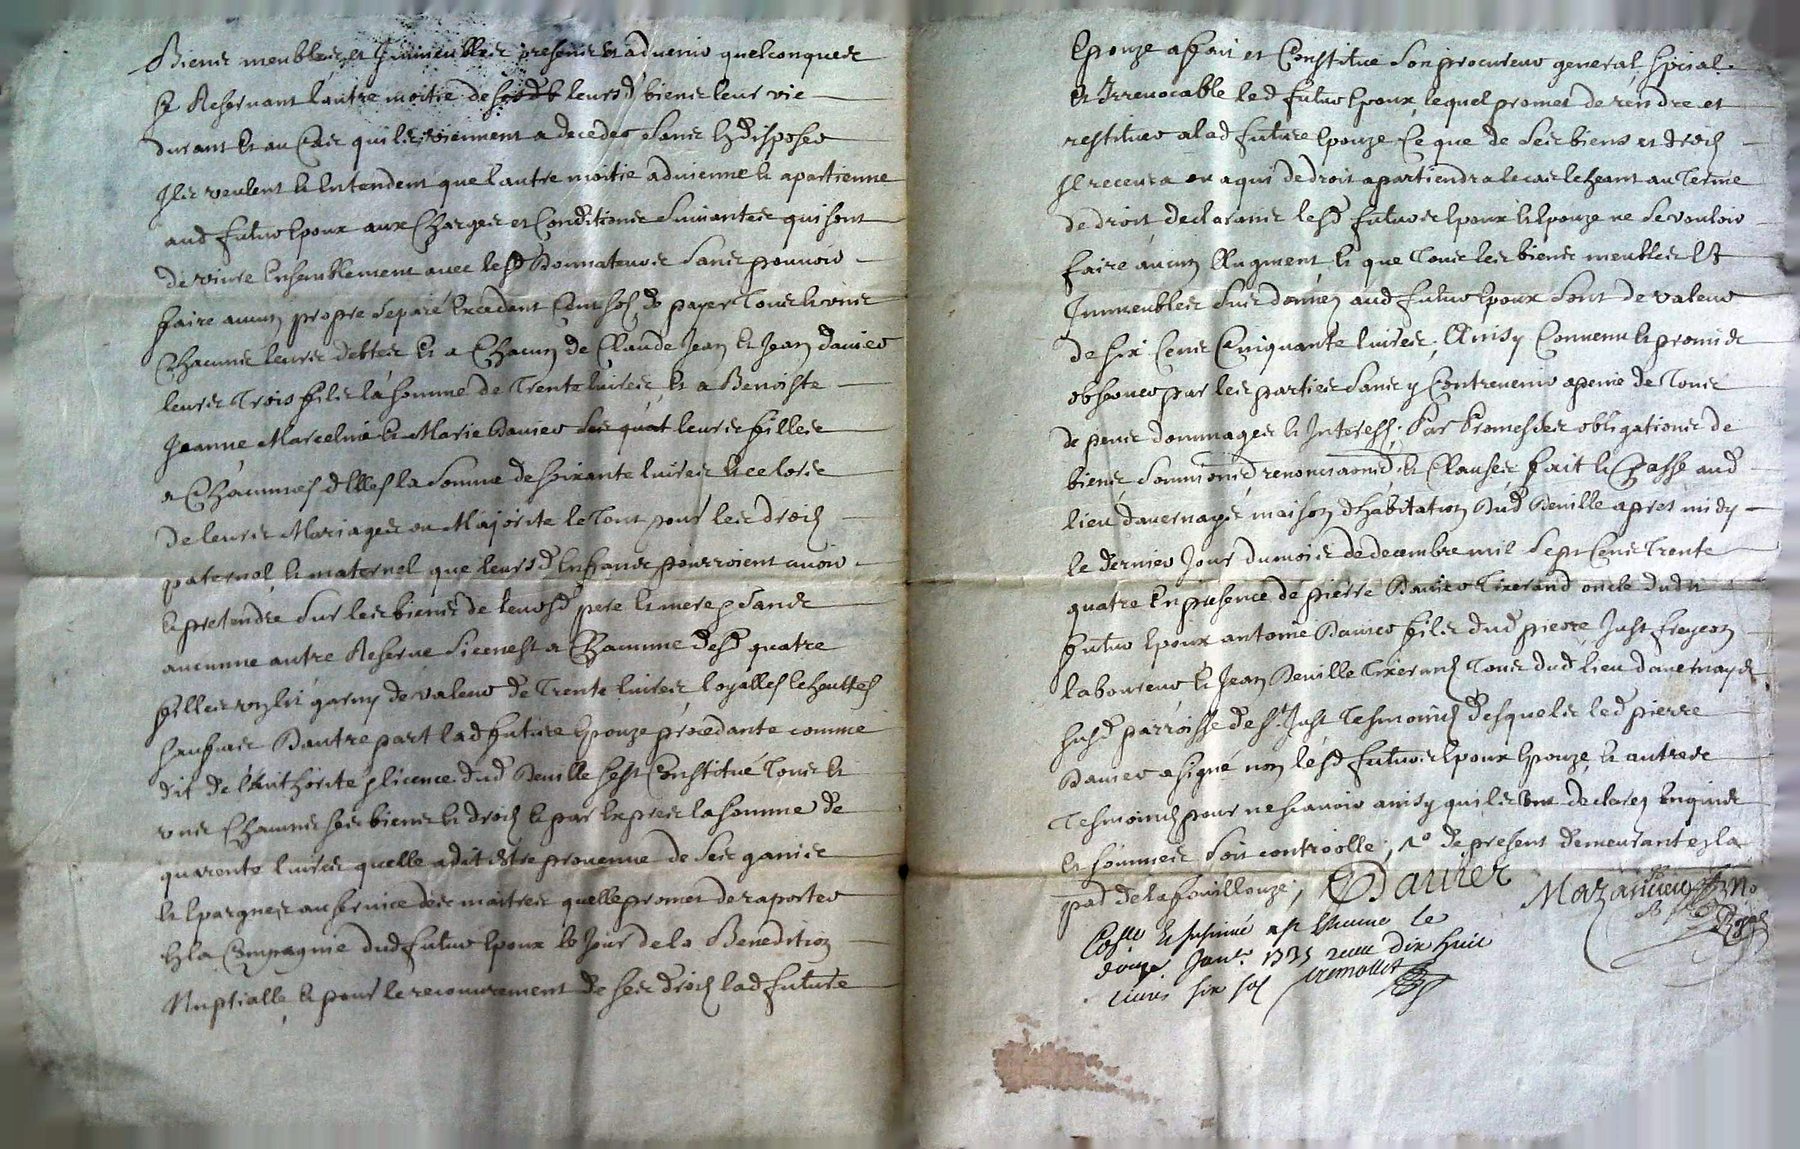 Biens meubles et Immeubles presents et advenir quelconques
Se Reservant lautre moitie de leursd biens leur vie
durant et au Cas quils viennent a deceder sans en disposer
Ils veulent et Entendent que lautre moitie advienne et apartienne
aud futur Epoux aux Charges et Conditions suivantes qui sont
de vivre Ensemblement avec lesd Donnateurs sans pouvoir
faire aucun propre separé Excedant Cent sols, de payer Tous et uns
Chacuns leurs debtes et a Chacun de Claude Jean et Jean davier
leurs Trois fils la somme de Trente livres, et a Benoiste
Jeanne Marceline et Marie Davier leurs filles
a Chacunnes dElles la somme de soixante livres et ce lors
de leurs Mariages ou Majorite le Tout pour les droits
paternel et maternel que leursd Enfans pourroient avoir
et pretendre sur les biens de leursd pere et mere sans
aucunne autre Reserve si cenest a Chacunne desd quatre
filles un lit garny de valeur de Trente livres, loyalles
Dautre part lad future Epouze procedante comme
dit de lAuthorite licence dud Deville sest Constitué Tous et
uns Chacuns ses biens et droits et par Expres la somme de
quarente livres quelle a dit Estre provenue de ses gages
et Epargnes au service des maitres quelle promet de raporter
En la Compagnie dud futur Epoux le Jour de la Benedition
Nuptialle, et pour le recouvrement de ses droits lad future
Epouze a fait et Constitue son procureur general, special
et Irrevocable led futur Epoux, lequel promet de rendre et
restituer a lad future Epouze Ce que de ses biens et droits
Il recevra ou a qui de droit apartiendra le cas Echeant au Terme
de droit, declarants lesd futurs Epoux et Epouze ne se vouloir
faire aucun Augment, et que Tous les biens meubles Et
Immeubles sus donnés aud futur Epoux sont de valeur
de six Cens Cinquante livres, Ainsy Convenu et promis
observer par les parties sans y Contrevenir a peine de Tous
depens dommages et Interests, Par Promesses obligations de
biens, soumissions, renonciations, et Clauses fait et Passé aud
lieu davernay maison dhabitation dud Deville apres midy
le dernier Jour du mois de decembre mil sept Cens Trente
quatre En presence de pierre Davier Tixerand oncle dudit
futur Epoux antoine Davier fils dud pierre, Just
laboureur et Jean Deville Tixerand Tous dud lieu davernay
susd parroisse de St Just Tesmoins desquels led pierre
Davier a signé non lesd futurs Epoux Epouze, et autres
Tesmoins pour ne scavoir ainsy quils ont declaré Enquis
et sommés soit controolle, de present demeurante En la
par de lafouillouze, Davier Mazancieu No
et Insinué a St le
douze Janv. 1735 receu dix huit
livres six sols